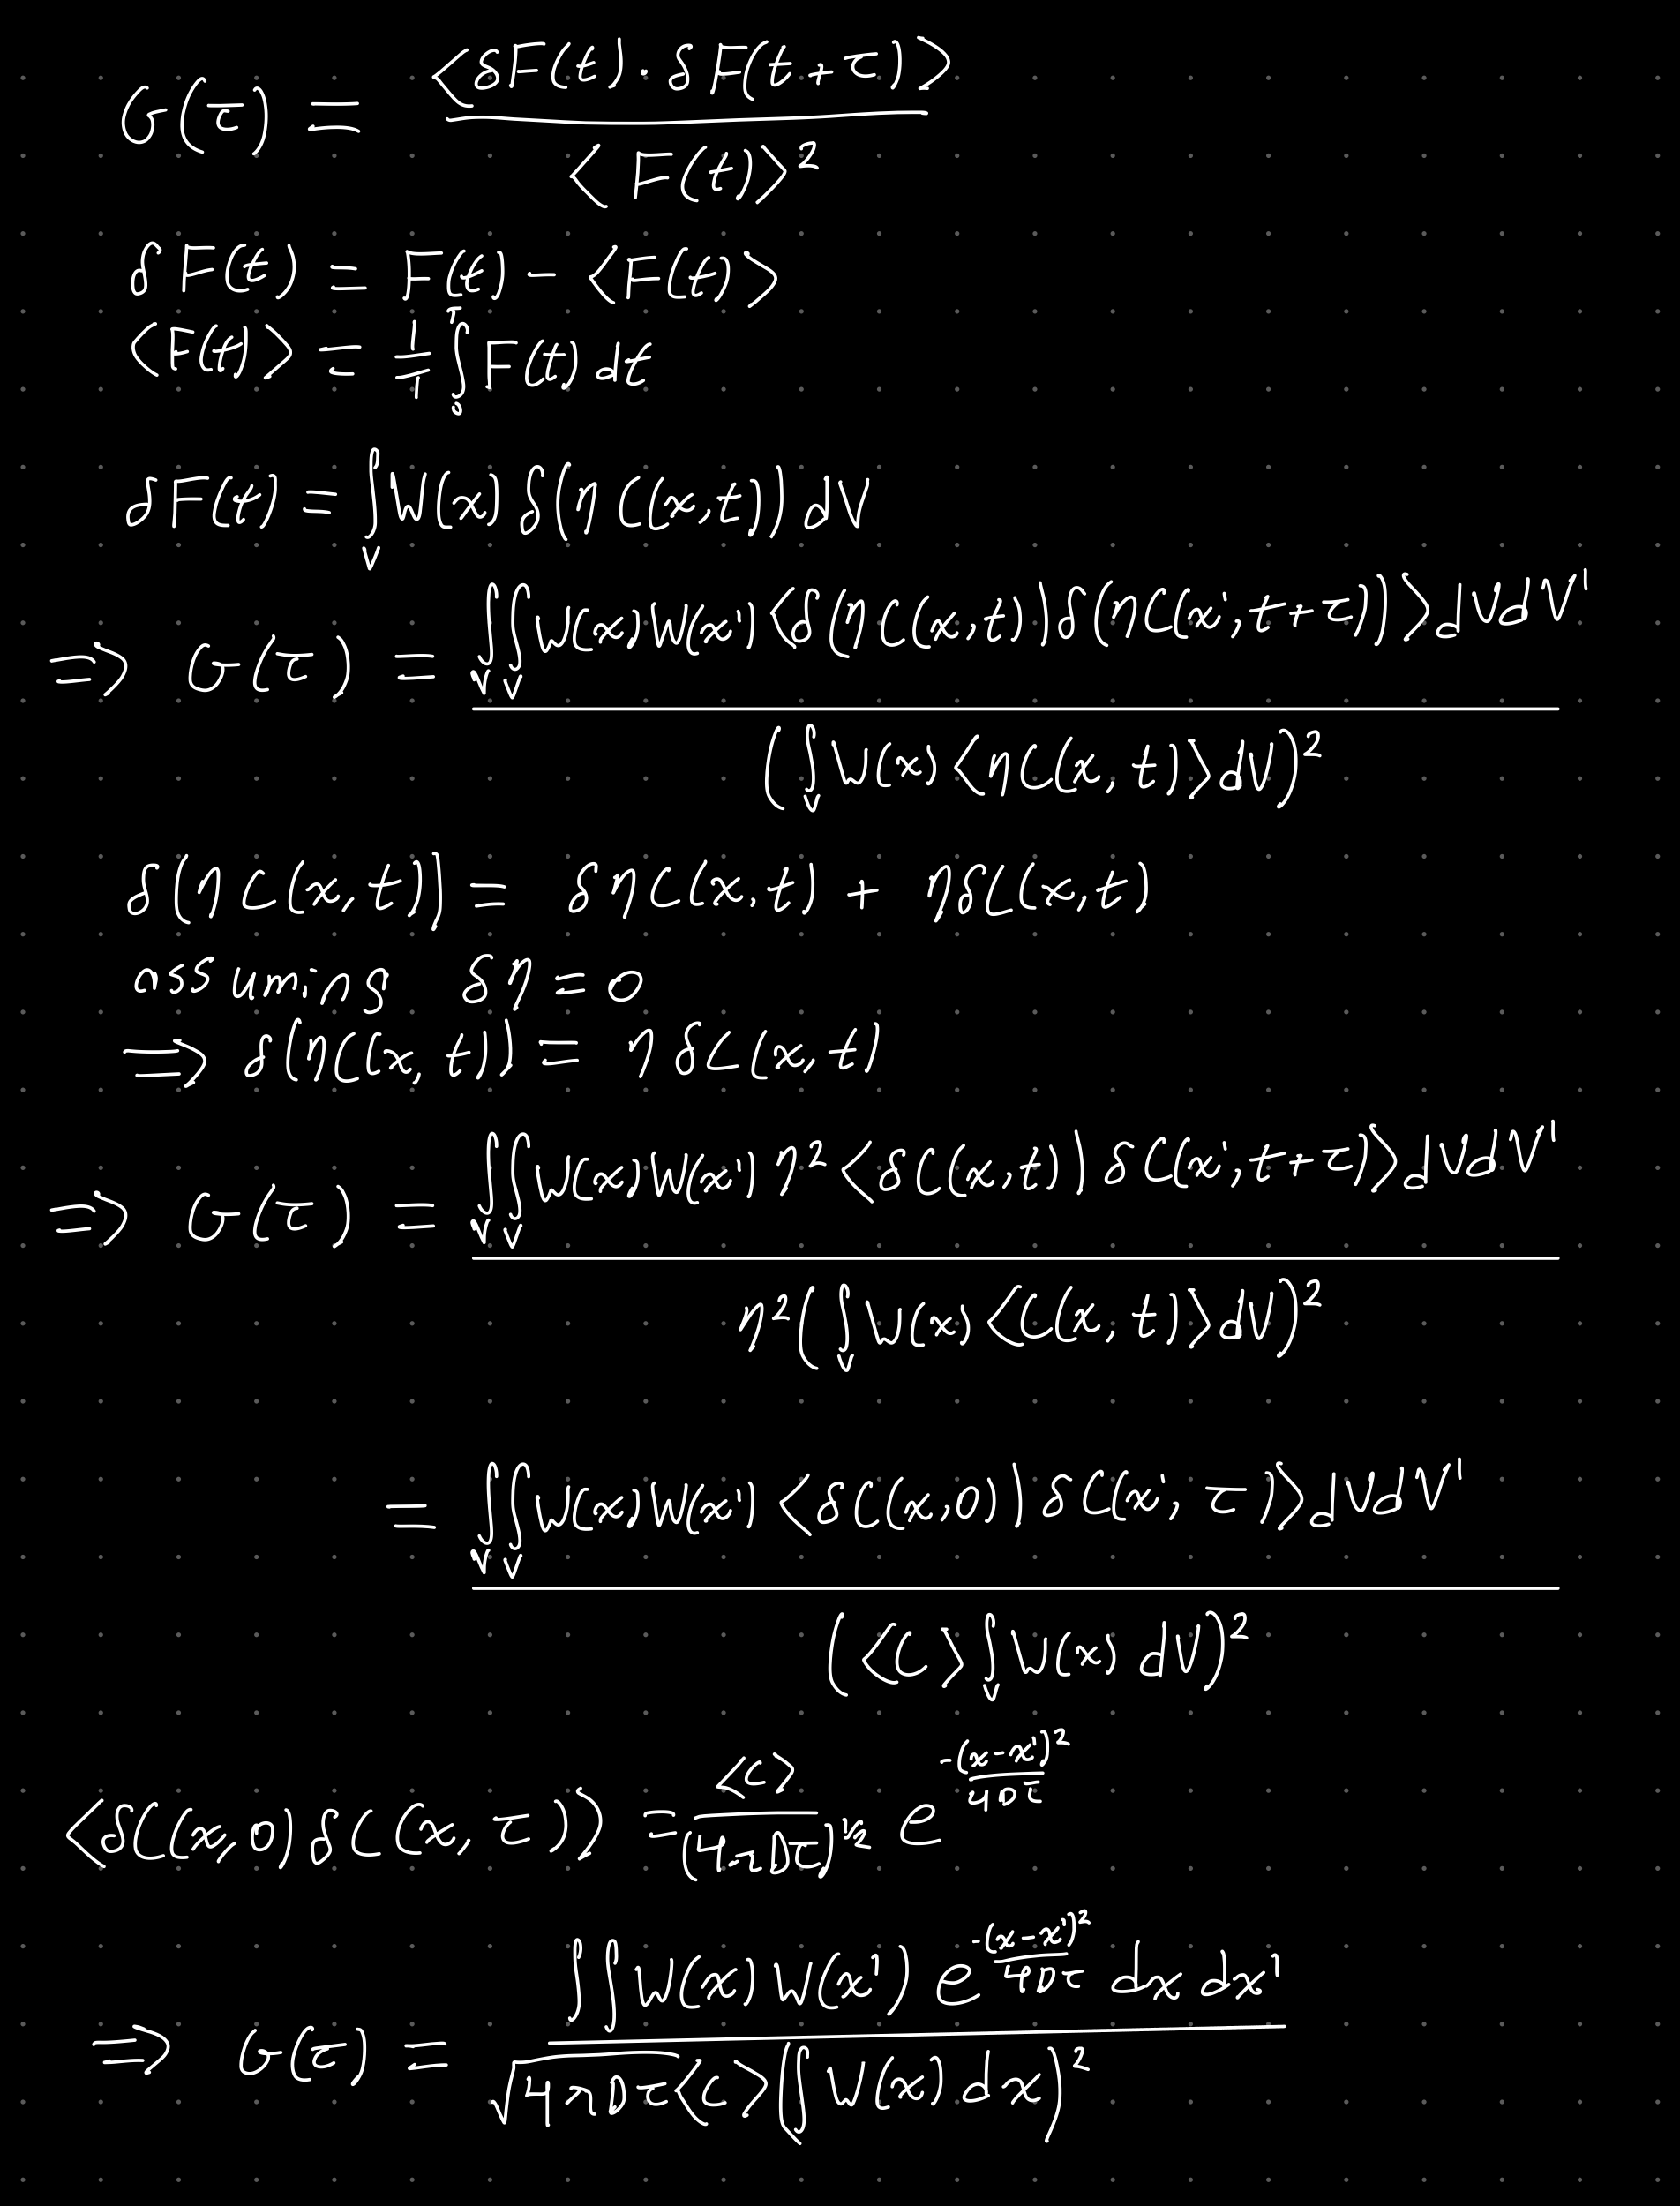 G(τ) = <δF(t)·δF(t+τ)> / <F(t)>²
δF(t) = F(t) - <F(t)>
<F(t)> = 1/T ∫₀ᵀ F(t) dt
δF(t) = ∫_V W(x) δ(η C(x,t)) dV
=> G(τ) = ∫_V ∫_V W(x) W(x') <δ(η C(x,t)) δ(η C(x', t+τ))> dV dV' / (∫_V W(x) <η C(x,t)> dV)²
δ(η C(x,t)) = δη C(x,t) + η δC(x,t)
assuming δη = 0
=> δ(η C(x,t)) = η δC(x,t)
=> G(τ) = ∫_V ∫_V W(x) W(x') η² <δC(x,t) δC(x', t+τ)> dV dV' / η² (∫_V W(x) <C(x,t)> dV)²
= ∫_V ∫_V W(x) W(x') <δC(x,0) δC(x', τ)> dV dV' / (<C> ∫_V W(x) dV)²
<δC(x,0) δC(x,τ)> = <C> / (4πDτ)^(1/2) e^(-(x-x')² / 4Dτ)
=> G(τ) = ∫∫ W(x) W(x') e^(-(x-x')² / 4Dτ) dx dx' / √(4πDτ) <C> (∫ W(x) dx)²